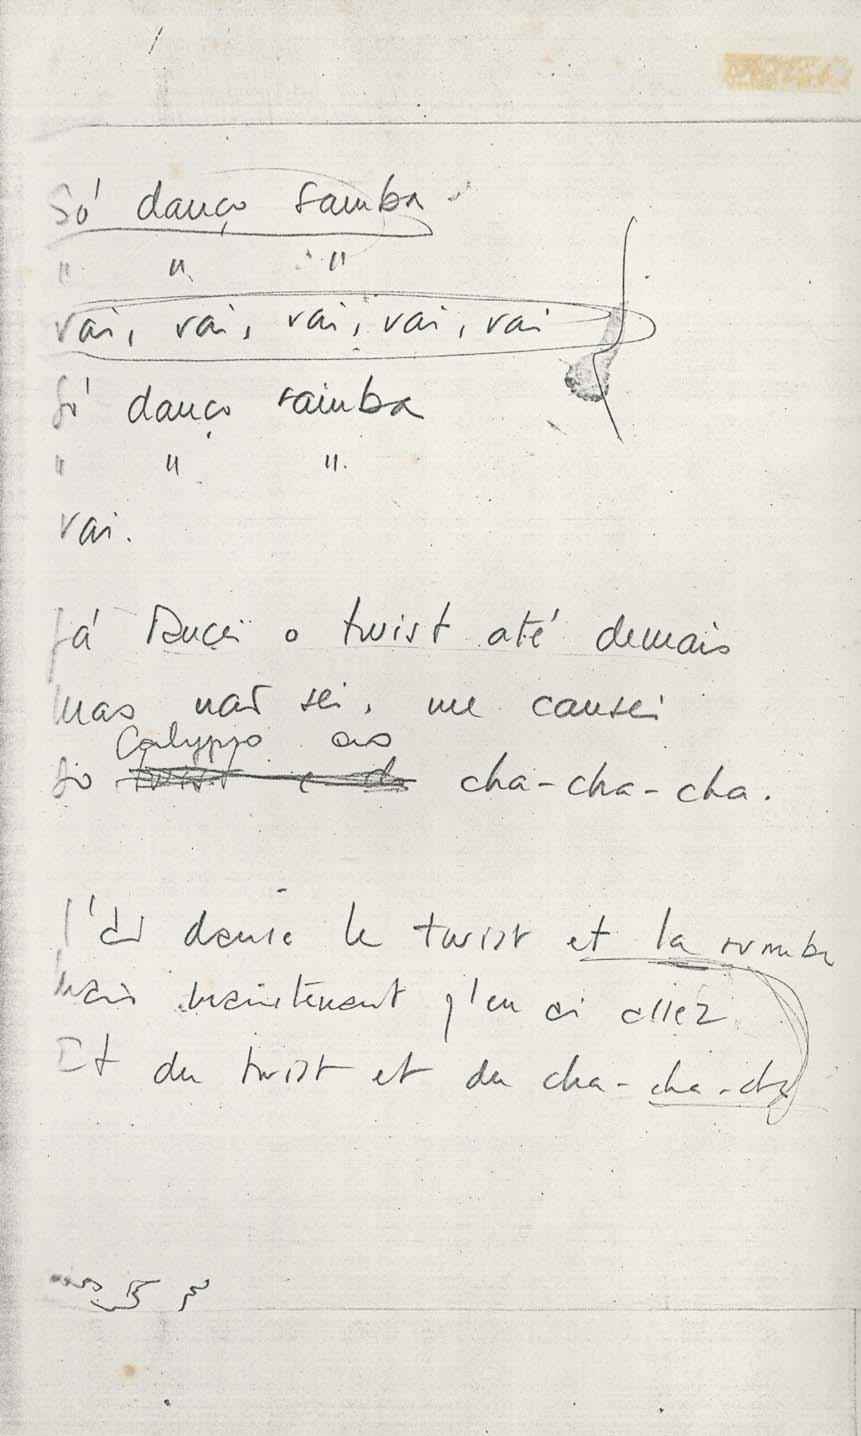 Só danço samba
" " "
vai, vai, vai, vai, vai
Só danço samba
" " "
vai.
Já Dancei o twist até demais
mas não sei, me cansei
Calypso ao
Do cha-cha-cha.
J'ai dansé le twist et la rumba
mais maintenant j'en ai assez
Et du twist et du cha-cha-cha